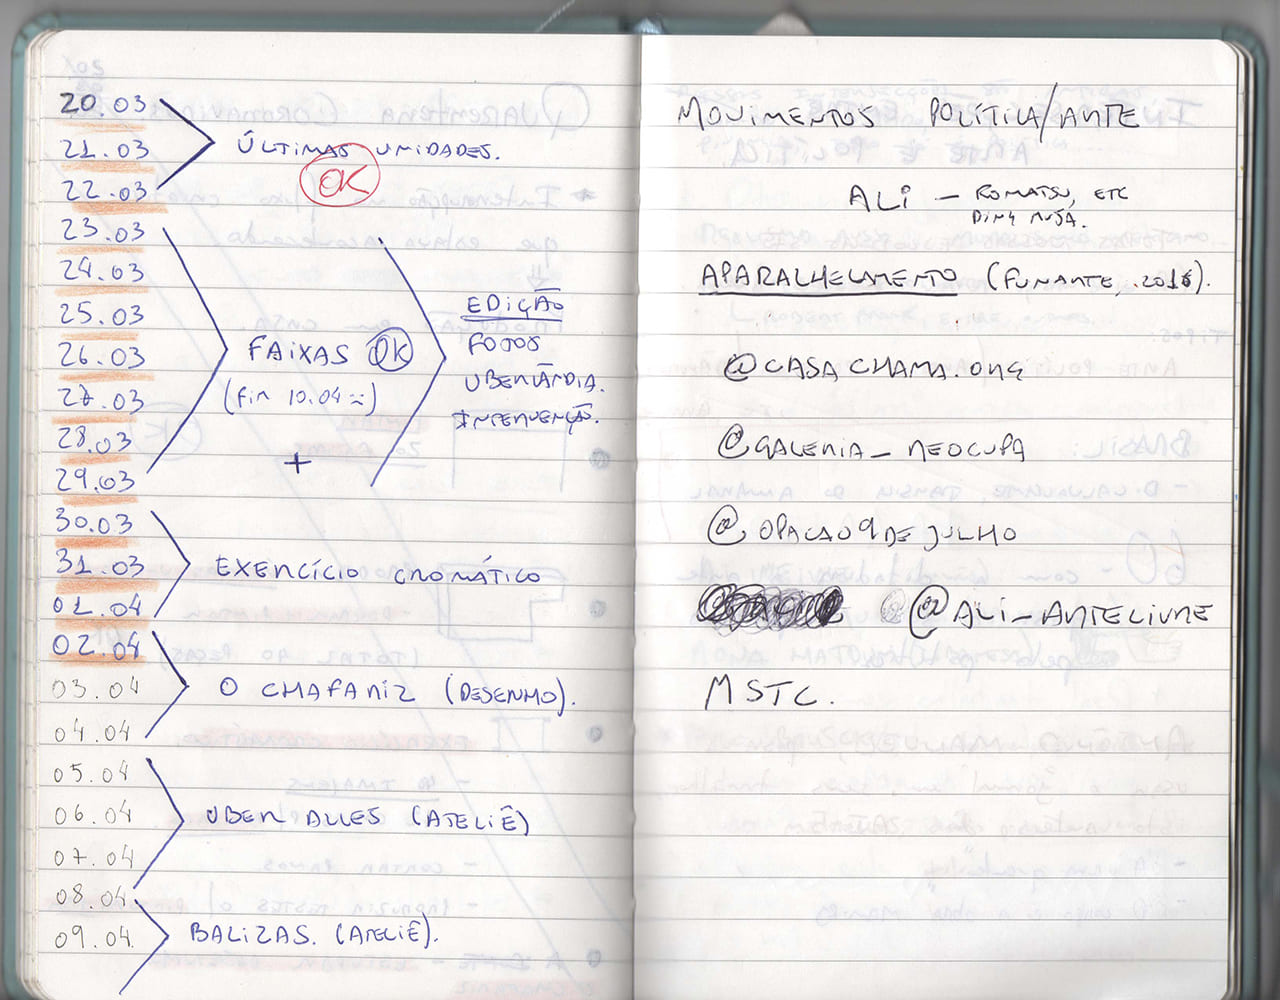 20.03
21.03
22.03
ÚLTIMAS UNIDADES.
OK
23.03
24.03
25.03
26.03
27.03
28.03
29.03
FAIXAS OK
(FIM 10.04 ~)
+
EDIÇÃO
FOTOS
UBERLÂNDIA.
INTERVENÇÃO.
30.03
31.03
01.04
EXERCÍCIO CROMÁTICO
02.04
03.04
04.04
O CHAFARIZ (DESENHO).
05.04
06.04
07.04
UBER ALLES (ATELIÊ)
08.04
09.04.
BALIZAS. (ATELIÊ).
MOVIMENTOS POLÍTICA/ARTE
ALI – ETC
APARALHELAMENTO (FUNARTE, 2016).
@CASACHAMA.ORG
@GALERIA_REOCUPA
@OPACAO9DEJULHO
@ALI_ARTELIVRE
MSTC.